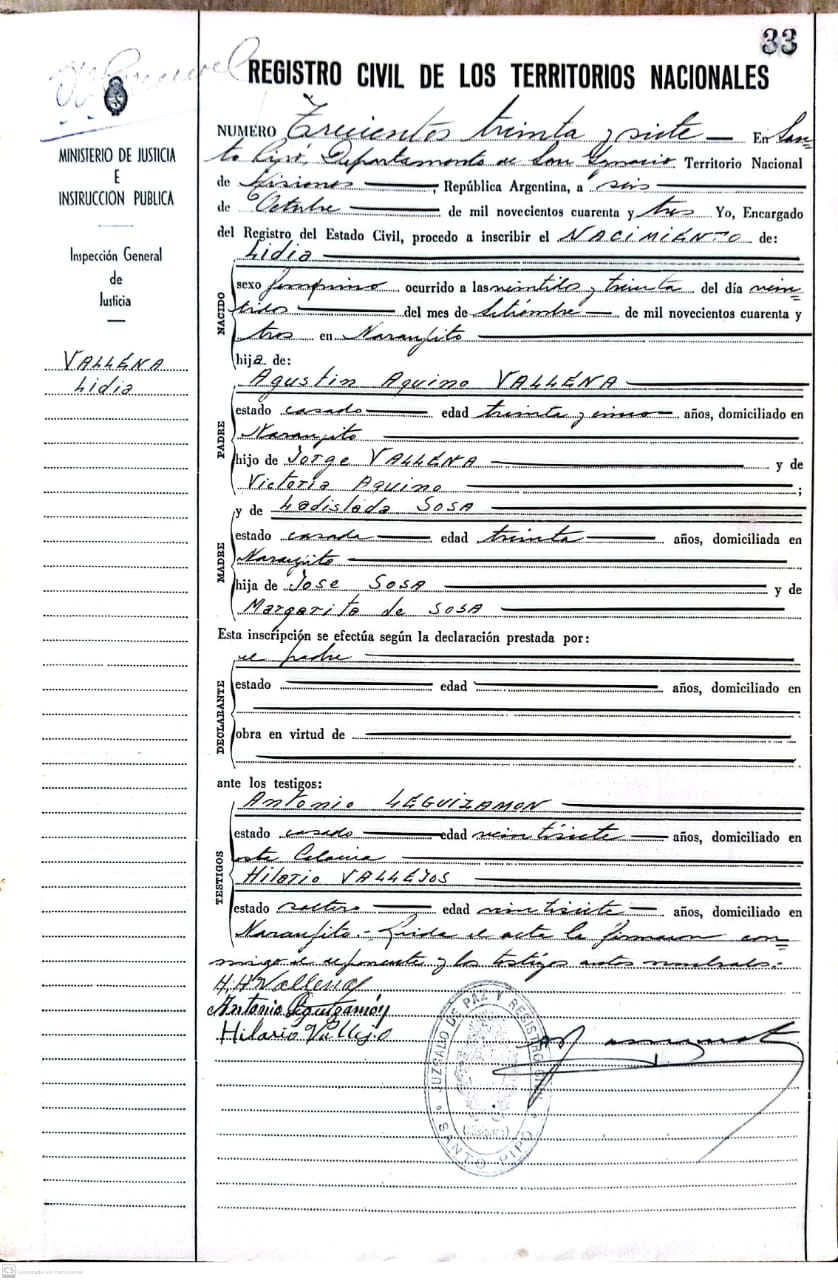 33
REGISTRO CIVIL DE LOS TERRITORIOS NACIONALES
MINISTERIO DE JUSTICIA
E
INSTRUCCION PUBLICA
Inspección General
de
Justicia
VALLENA
Lidia
NUMERO Trecientos treinta y siete En San=
to Pipó, Departamento de San Ignacio. Territorio Nacional
de Misiones, República Argentina, a seis
de Octubre de mil novecientos cuarenta y tres Yo, Encargado
del Registro del Estado Civil, procedo a inscribir el NACIMIENTO de:
Lidia
NACIDO
sexo femenino ocurrido a las veintidos y treinta del día vein=
tidos del mes de Setiembre de mil novecientos cuarenta y
tres en Naranjito
hija de:
PADRE
Agustin Aquino VALLENA
estado casado edad treinta y cinco años, domiciliado en
Naranjito
hijo de Jorge VALLENA y de
Victoria Aquino ;
MADRE
y de Ladislada SOSA
estado casada edad treinta años, domiciliada en
Naranjito
hija de Jose SOSA y de
Margarita de SOSA
Esta inscripción se efectúa según la declaración prestada por:
DECLARANTE
el padre
estado edad años, domiciliado en
obra en virtud de
ante los testigos:
TESTIGOS
Antonio LEGUIZAMON
estado casado edad veintisiete años, domiciliado en
esta Colonia
Hilario VALLEJOS
estado soltero edad veintisiete años, domiciliado en
Naranjito.- Leida el acta la firmaron con=
migo el exponente y los testigos antes nombrados:
Vallena
Antonio Leguizamón
Hilario Vallejo
JUZGADO DE PAZ Y REGISTRO CIVIL
SANTO PIPO
(MISIONES)
CS Escaneado con CamScanner